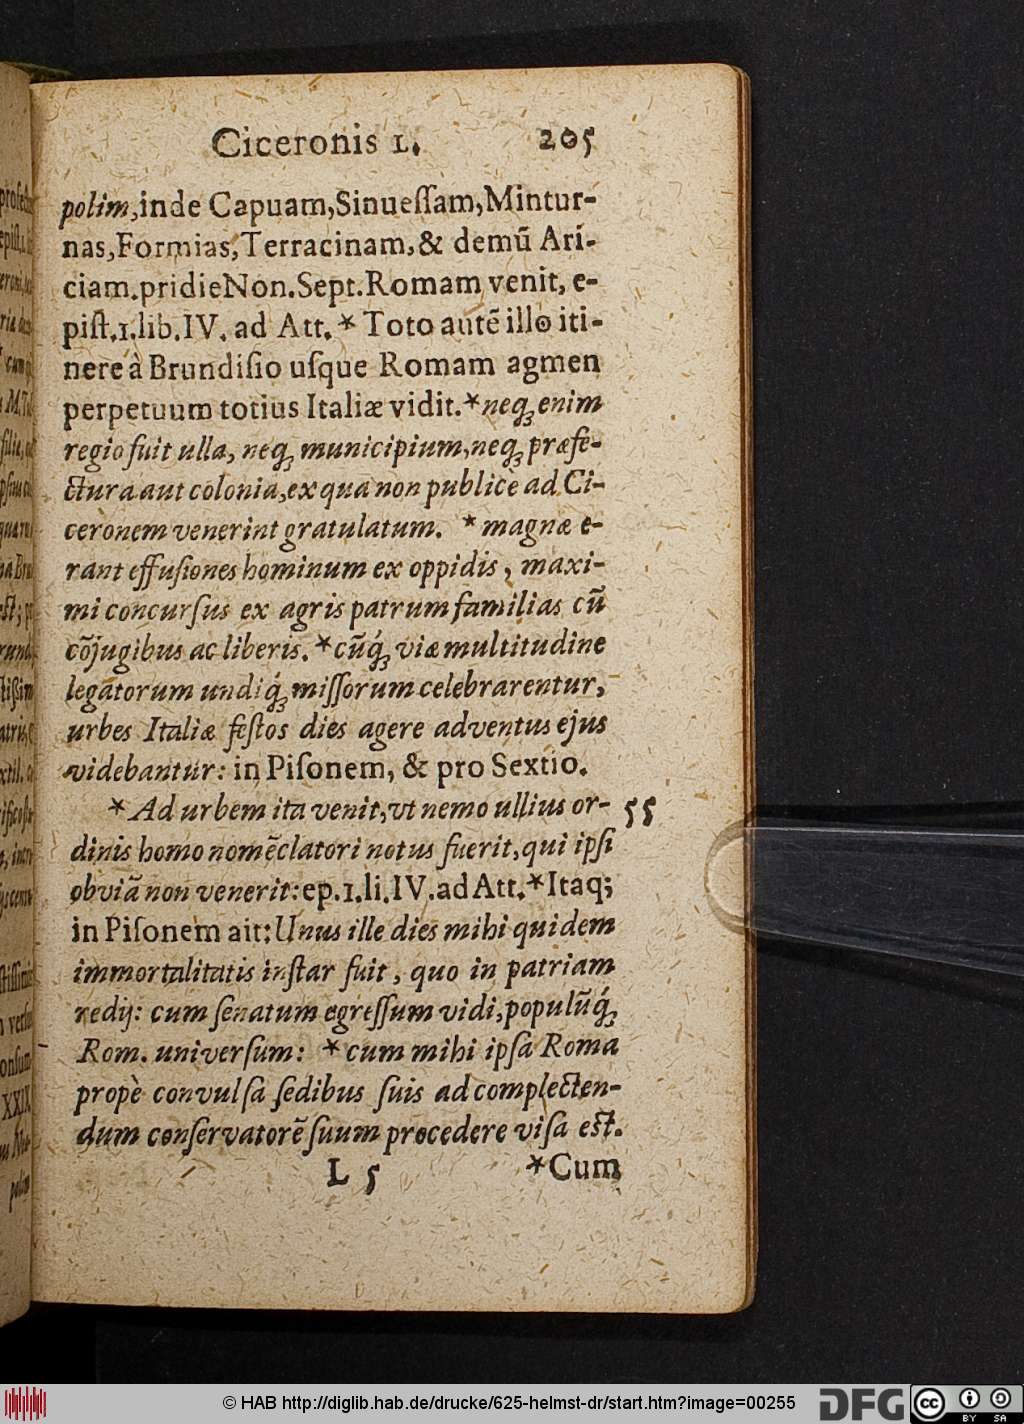 Ciceronis L. 205
polim,inde Capuam,Sinueſſam,Mintur-
nas,Formias,Terracinam,& demũ Ari-
ciam.pridieNon.Sept.Romam venit, e-
piſt.1.lib.IV. ad Att. * Toto autẽ illo iti-
nere à Brundiſio uſque Romam agmen
perpetuum totius Italiæ vidit.*neq; enim
regio fuit ulla, neq; municipium,neq; præfe-
ctura aut colonia,ex qua non publicè ad Ci-
ceronem venerint gratulatum. * magnæ e-
rant effuſiones hominum ex oppidis, maxi-
mi concurſus ex agris patrum familias cũ
cõjugibus ac liberis.*cũq́; viæ multitudine
legatorum undiq́; miſſorum celebrarentur,
urbes Italiæ feſtos dies agere adventus ejus
videbantur: in Piſonem, & pro Sextio.
* Ad urbem ita venit,vt nemo ullius or- 55
dinis homo nomẽclatori notus fuerit,qui ipſi
obviã non venerit: ep.1.li.IV.ad Att.*Itaq;
in Piſonem ait: Unus ille dies mihi quidem
immortalitatis inſtar fuit, quo in patriam
redij: cum ſenatum egreſſum vidi,populũq́;
Rom. univerſum: * cum mihi ipſa Roma
propè convulſa ſedibus ſuis ad complecten-
dum conſervatorẽ ſuum procedere viſa eſt.
L 5 *Cum
© HAB http://diglib.hab.de/drucke/625-helmst-dr/start.htm?image=00255
DFG
cc BY SA